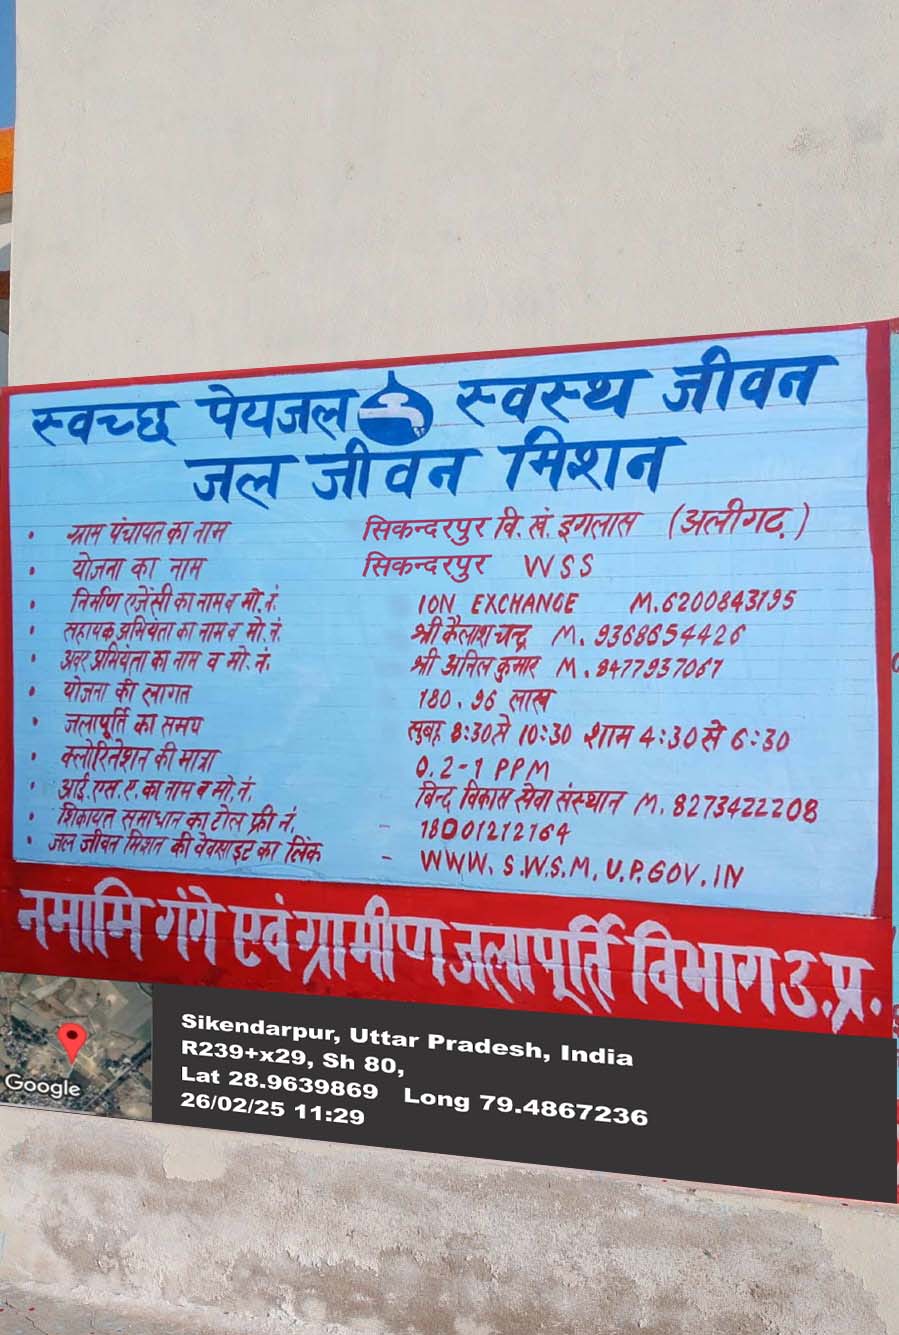 स्वच्छ पेयजल स्वस्थ जीवन
जल जीवन मिशन
• ग्राम पंचायत का नाम सिकन्दरपुर वि. खं. इगलास (अलीगढ़)
• योजना का नाम सिकन्दरपुर WSS
• निर्माण एजेंसी का नाम व मो. नं. ION EXCHANGE M. 6200843195
• सहायक अभियंता का नाम व मो. नं. श्री कैलाश चन्द्र M. 9368654426
• अवर अभियंता का नाम व मो. नं. श्री अनिल कुमार M. 8477937067
• योजना की लागत 180.96 लाख
• जलापूर्ति का समय सुबह 8:30 से 10:30 शाम 4:30 से 6:30
• क्लोरिनेशन की मात्रा 0.2-1 PPM
• आई. एस. ए. का नाम व मो. नं. बिन्द विकास सेवा संस्थान M. 8273422208
• शिकायत समाधान का टोल फ्री नं. - 18001212164
• जल जीवन मिशन की वेवसाइट का लिंक - WWW. S.W.S.M. U.P.GOV.IN
नमामि गंगे एवं ग्रामीण जलापूर्ति विभाग उ.प्र.
Google
Sikendarpur, Uttar Pradesh, India
R239+x29, Sh 80,
Lat 28.9639869 Long 79.4867236
26/02/25 11:29